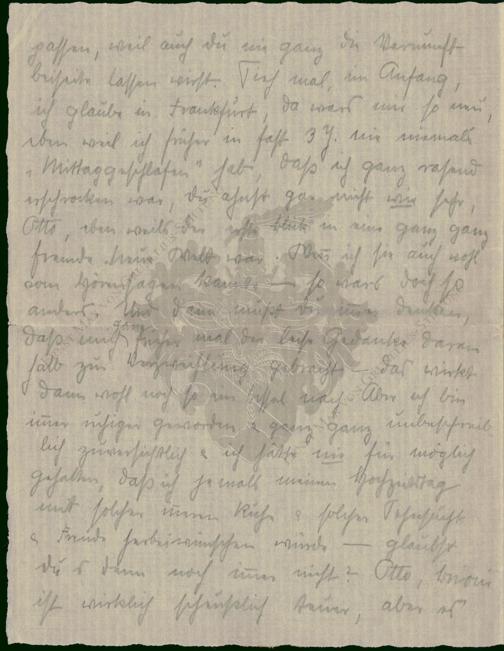 passen, weil auch du nie ganz die Vernunft
beiseite lassen wirst. Sieh mal, im Anfang,
ich glaube in Frankfurt, da wars mir so neu,
eben weil ich früher in fast 3 J. nie niemals
"Mittaggeschlafen" hab, daß ich ganz rasend
erschrocken war, du ahnst gar nicht wie sehr,
Otto, eben weils der erste Blick in eine ganz ganz
fremde neue Welt war. Was ich sie auch wohl
vom Hörensagen kannte — so wars doch so
anders. Und dann mußt du immer denken,
daß mich ganz früher mal der leise Gedanke daran
halb zur Verzweiflung gebracht — das wirkt
dann wohl noch so ein bissel nach. Aber ich bin
immer ruhiger geworden & ganz ganz unbeschreib
lich zuversichtlich & ich hätte nie für möglich
gehalten, daß ich jemals meinen Hochzeitstag
mit solcher inneren Ruhe & solcher Sehnsucht
& Freude herbeiwünschen würde — glaubst
du's denn noch immer nicht? Otto,
ist wirklich scheußlich teuer, aber es